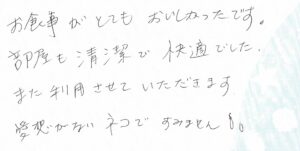 お食事がとてもおいしかったです。
部屋も清潔で快適でした.
また利用させていただきます
愛想がないネコですみません。